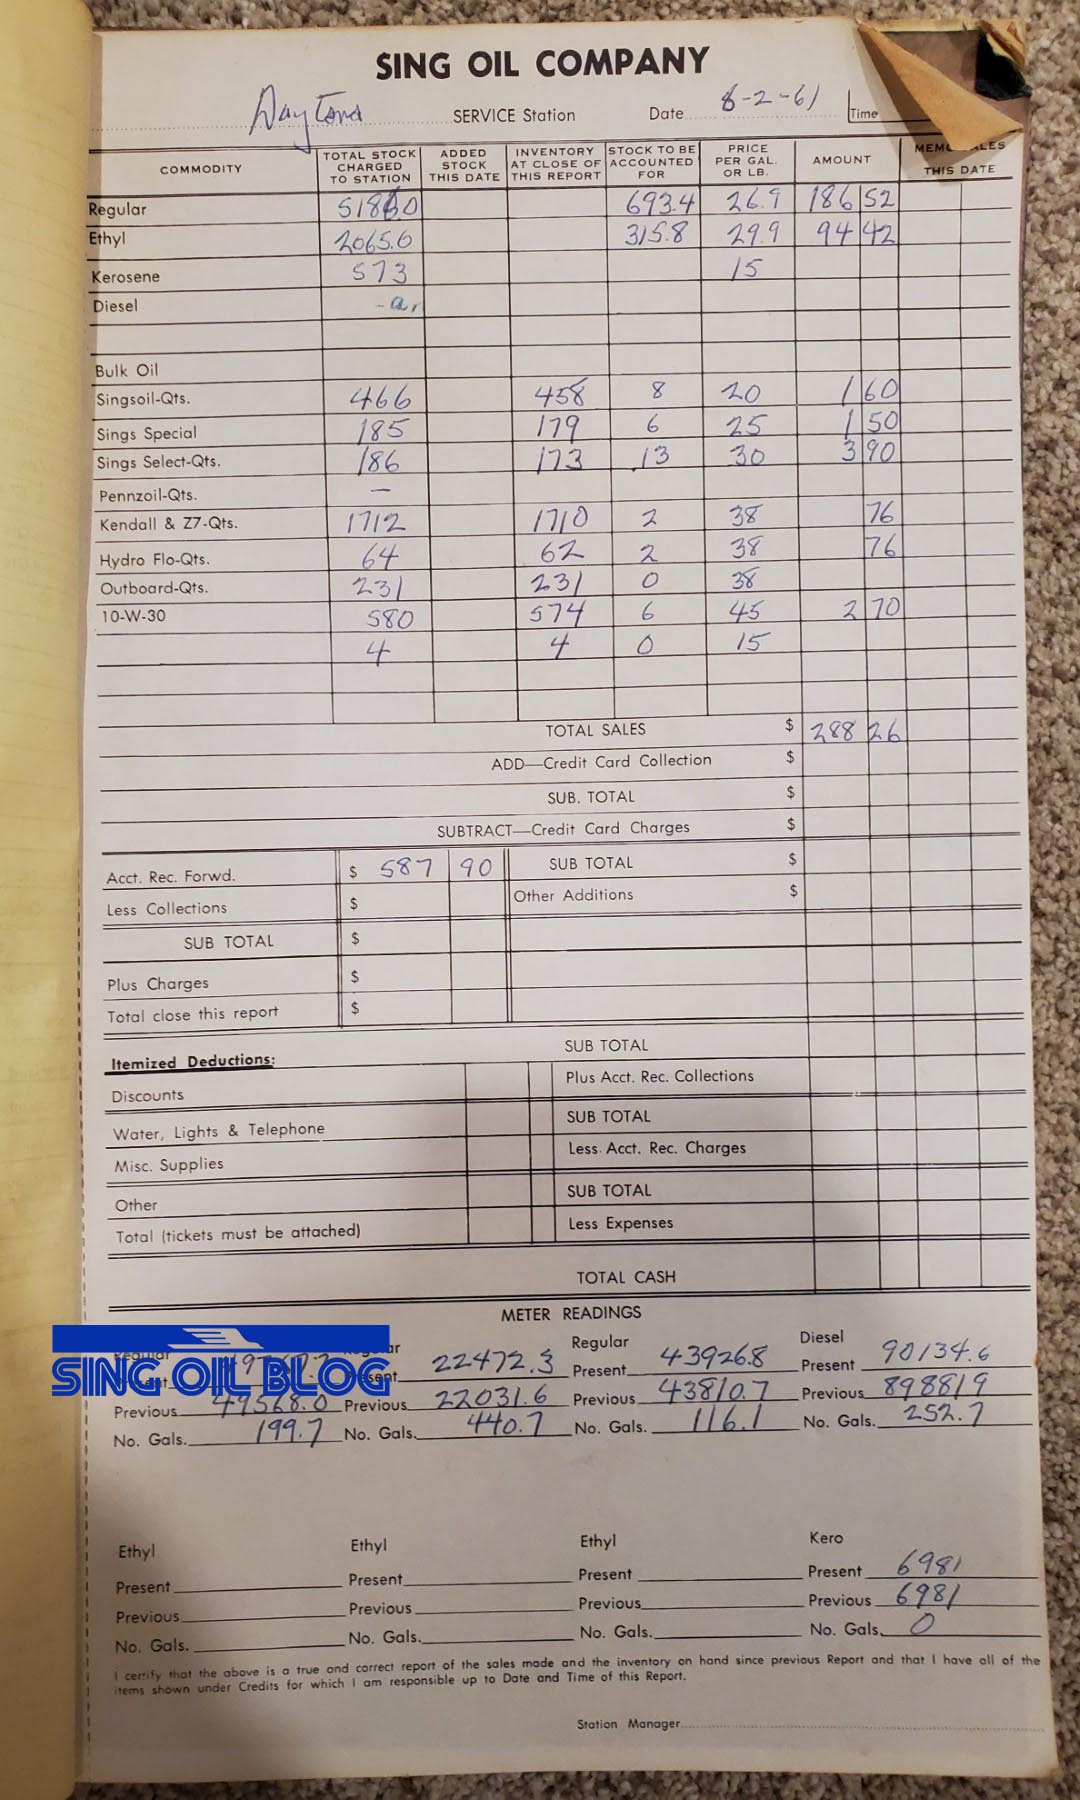 SING OIL COMPANY
Daytona SERVICE Station Date 8-2-61 Time
COMMODITY TOTAL STOCK CHARGED TO STATION ADDED STOCK THIS DATE INVENTORY AT CLOSE OF THIS REPORT STOCK TO BE ACCOUNTED FOR PRICE PER GAL. OR LB. AMOUNT THIS DATE
Regular 693.4 26.9 186 52
Ethyl 2065.6 315.8 29.9 94 42
Kerosene 573 15
Diesel
Bulk Oil
Singsoil-Qts. 466 458 8 20 1 60
Sings Special 185 179 6 25 1 50
Sings Select-Qts. 186 173 13 30 3 90
Pennzoil-Qts. —
Kendall & Z7-Qts. 1712 1710 2 38 76
Hydro Flo-Qts. 64 62 2 38 76
Outboard-Qts. 231 231 0 38
10-W-30 580 574 6 45 2 70
4 4 0 15
TOTAL SALES $ 288 26
ADD—Credit Card Collection $
SUB. TOTAL $
SUBTRACT—Credit Card Charges $
Acct. Rec. Forwd. $ 587 90 SUB TOTAL $
Less Collections $ Other Additions $
SUB TOTAL $
Plus Charges $
Total close this report $
SUB TOTAL
Itemized Deductions:
Plus Acct. Rec. Collections
Discounts
SUB TOTAL
Water, Lights & Telephone
Less Acct. Rec. Charges
Misc. Supplies
SUB TOTAL
Other
Less Expenses
Total (tickets must be attached)
TOTAL CASH
METER READINGS
Regular Regular Diesel
SING OIL BLOG
Present 22472.3 Present 43926.8 Present 90134.6
Previous 49568.0 Previous 22031.6 Previous 43810.7 Previous 89881.9
No. Gals. 199.7 No. Gals. 440.7 No. Gals. 116.1 No. Gals. 252.7
Ethyl Ethyl Ethyl Kero
Present Present Present Present 6981
Previous Previous Previous Previous 6981
No. Gals. No. Gals. No. Gals. No. Gals. 0
I certify that the above is a true and correct report of the sales made and the inventory on hand since previous Report and that I have all of the
items shown under Credits for which I am responsible up to Date and Time of this Report.
Station Manager